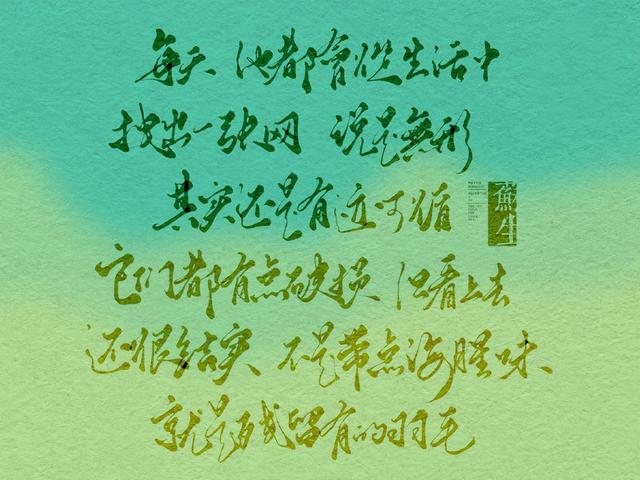 每天 他都會從生活中
找出一张网 说是無形
其实还是有迹可循
蘇生
它们都有点破损 但看上去
还很结实 不是带点海腥味
就是残留有的羽毛